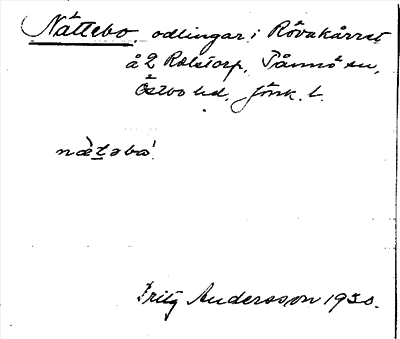 Nättebo, odlingar i Rövakärret
å 2 Rolstorp, Tånnö sn,
Östbo hd, Jönk. l.
nät̲əbo'.
Fritz Andersson 1930.